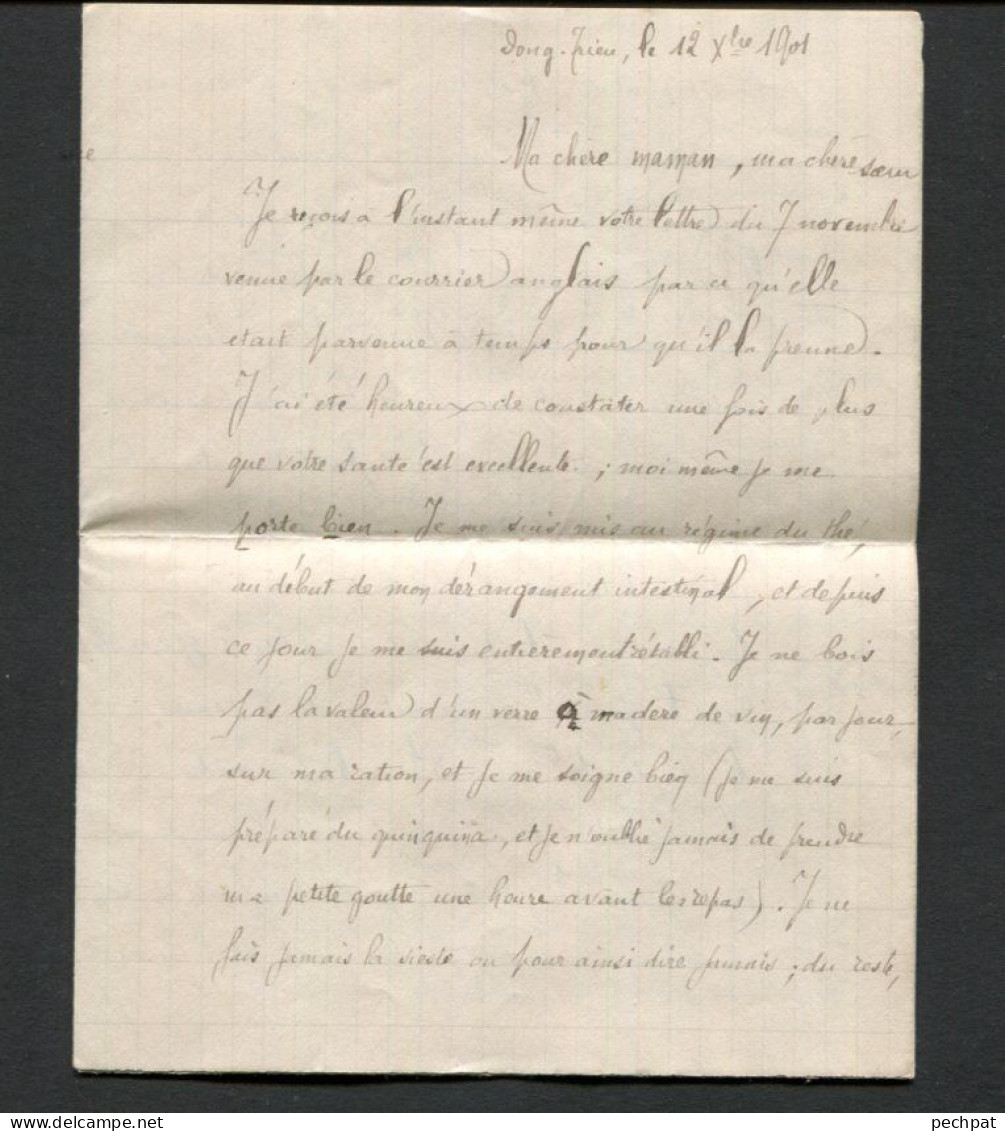 Dong-Trieu, le 12 Xbre 1901
Ma chère maman, ma chère sœur
Je reçois à l'instant même votre lettre du 7 novembre
venue par le courrier anglais par ce qu'elle
était parvenue à temps pour qu'il la prenne.
J'ai été heureux de constater une fois de plus
que votre santé est excellente ; moi même je me
porte bien. Je me suis mis au régime du thé,
au début de mon dérangement intestinal, et depuis
ce jour je me suis entièrement rétabli. Je ne bois
pas la valeur d'un verre à madère de vin, par jour,
sur ma ration, et je me soigne bien (je me suis
préparé du quinquina, et je n'oublie jamais de prendre
ma petite goutte une heure avant les repas). Je ne
fais jamais la sieste ou pour ainsi dire jamais ; du reste,
pechpat